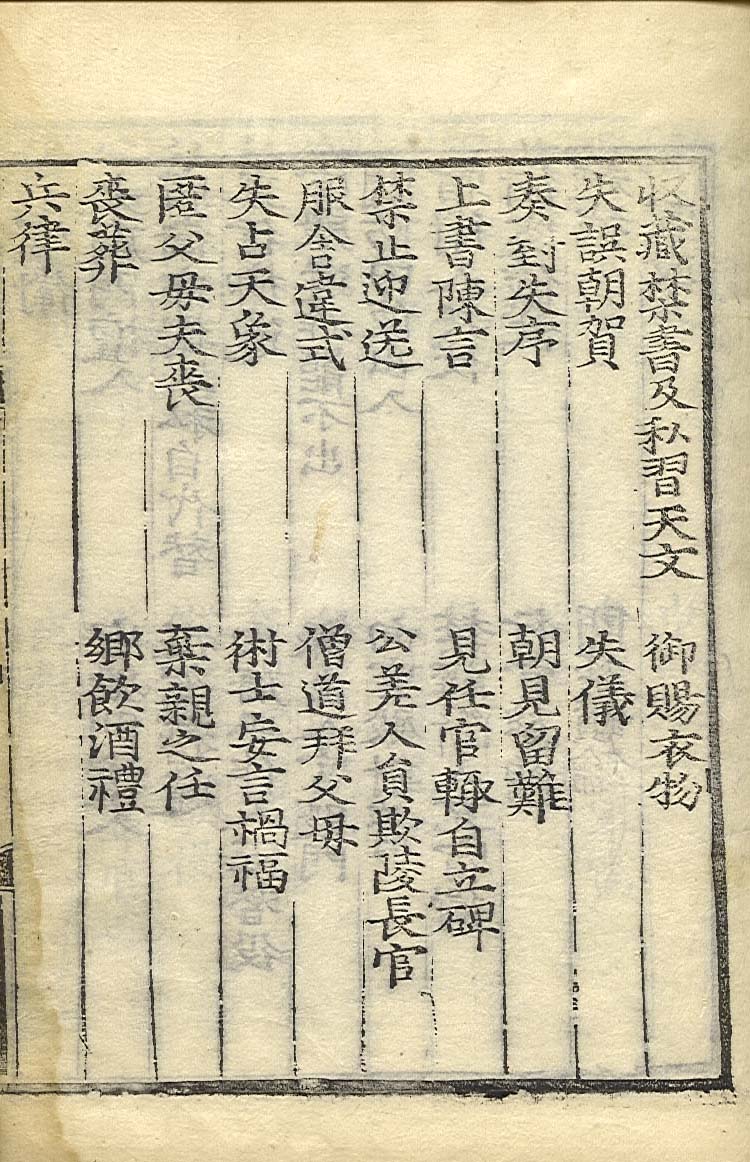 收藏禁書及私習天文 御賜衣物
失誤朝賀 失儀
奏對失序 朝見留難
上書陳言 見任官輙自立碑
禁止迎送 公差人員欺陵長官
服舍違式 僧道拜父母
失占天象 術士妄言禍福
匿父母夫喪 棄親之任
喪葬 鄉飲酒禮
兵律